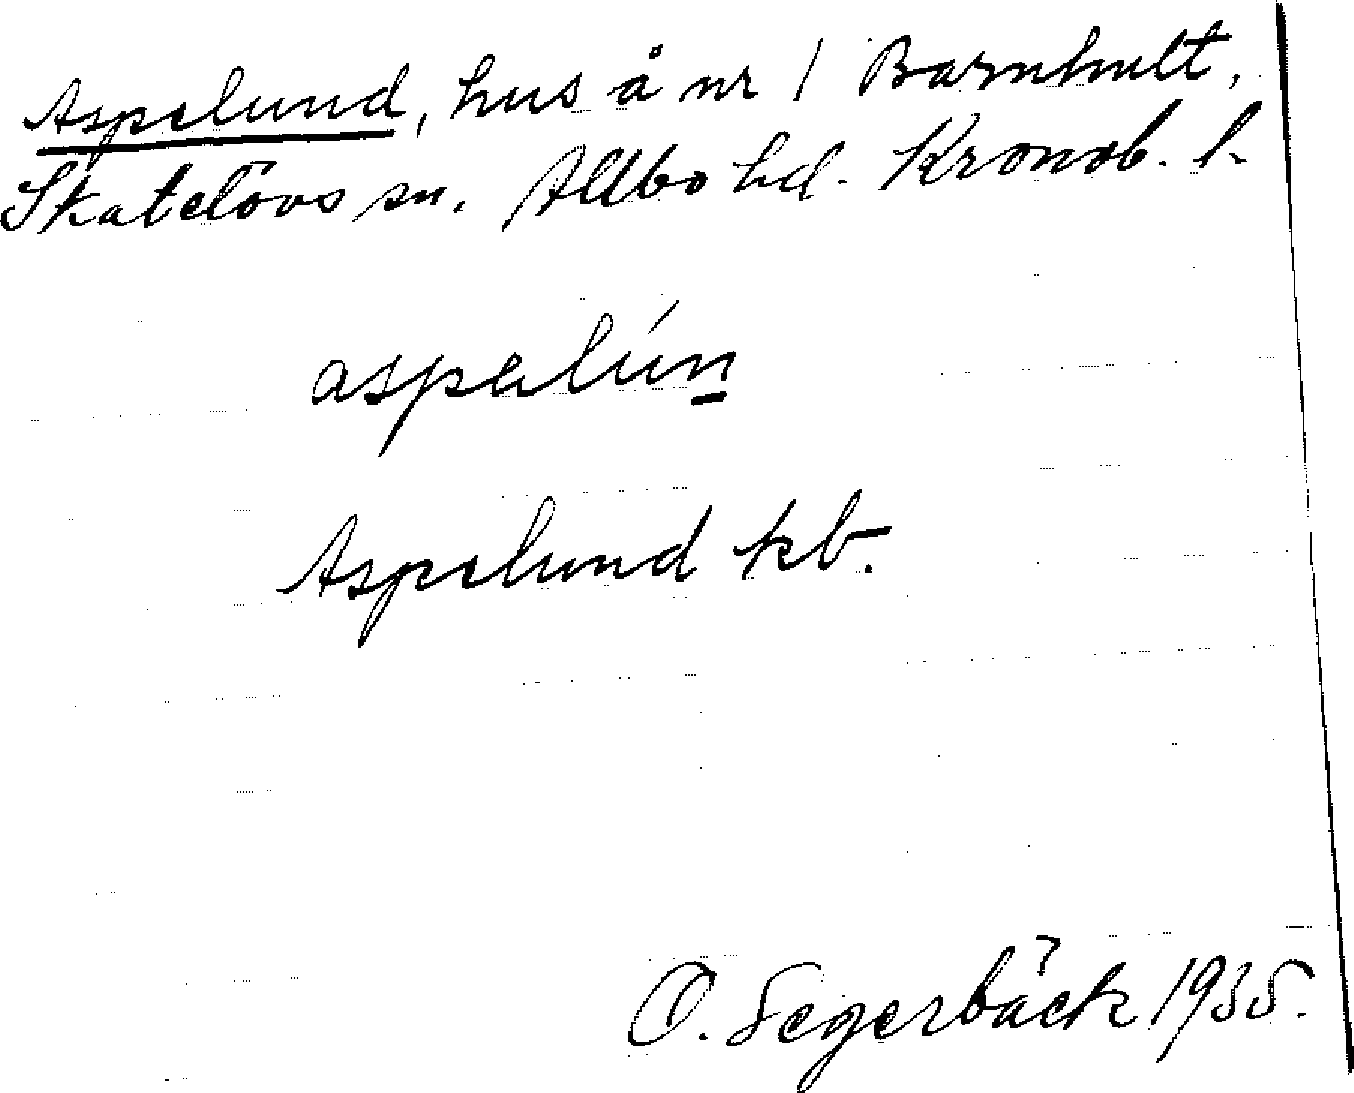 Aspelund, hus å nr 1 Barnhult,
Skatelövs sn. Allbo hd. Kronob. l.
aspelún
Aspelund kb.
O. Segerbäck 1935.